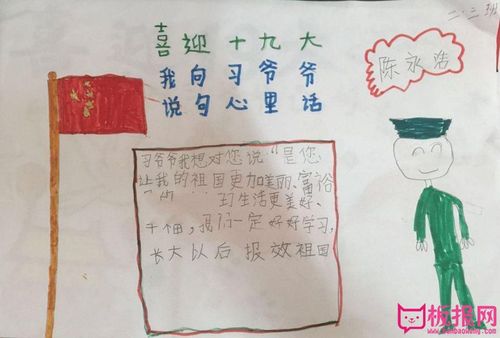 二.三班
喜迎十九大
我向习爷爷
说句心里话
陈永浩
习爷爷我想对您说"是您
让我的祖国更加美丽、富裕
们生活更美好、
我们一定好好学习,
长大以后报效祖国
板报网